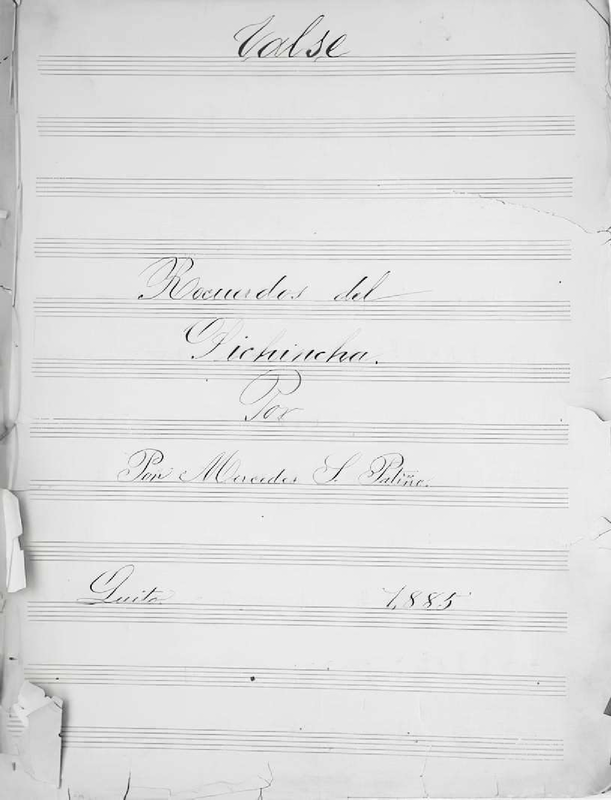 Valse
Recuerdos del
Pichincha.
Por
Por Mercedes S. Patiño.
Quito.    1,885